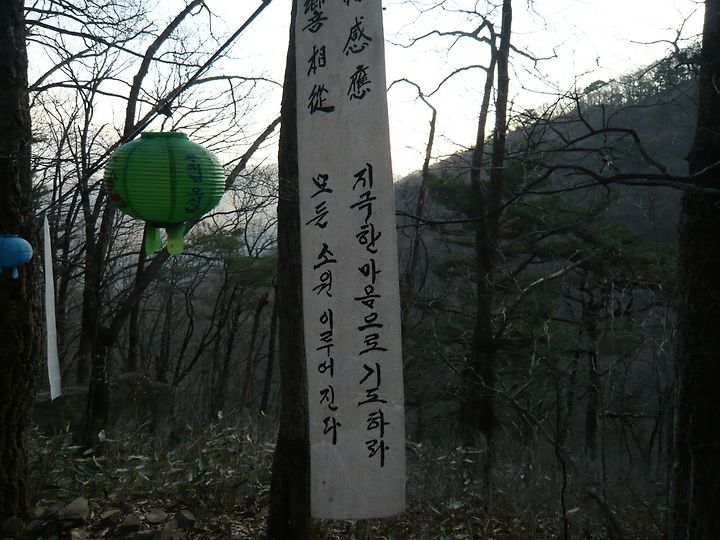 感應 지극한 마음으로 기도하라
響相從 모든 소원 이루어진다
부처님 오신